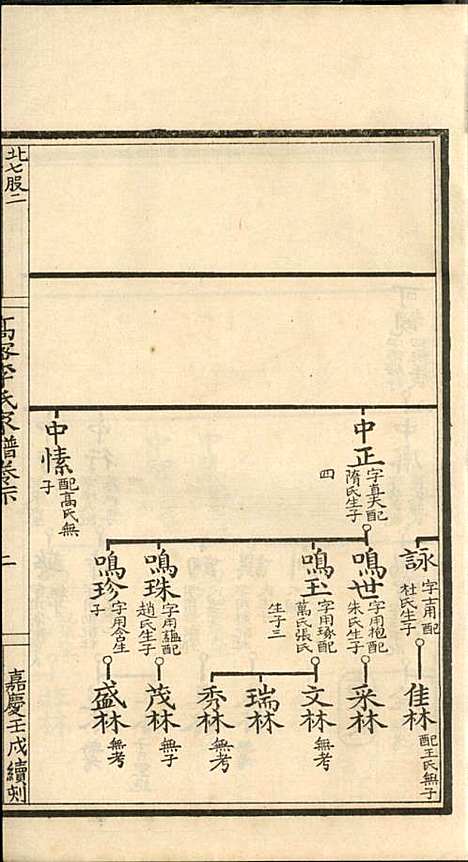 詠
字士甫配
杜氏生子
佳林
配王氏無子
中正
字真夫配
隋氏生子
四
鳴世
字用抱配
朱氏生子
采林
無考
鳴玉
字用琢配
萬氏張氏
生子三
文林
無考
瑞林
秀林
無考
鳴珠
字用韞配
趙氏生子
茂林
無子
鳴珍
字用含生
子
盛林
無考
中愫
配高氏無
子
北七股二
高密李氏家譜卷
二
嘉慶壬戌續刻